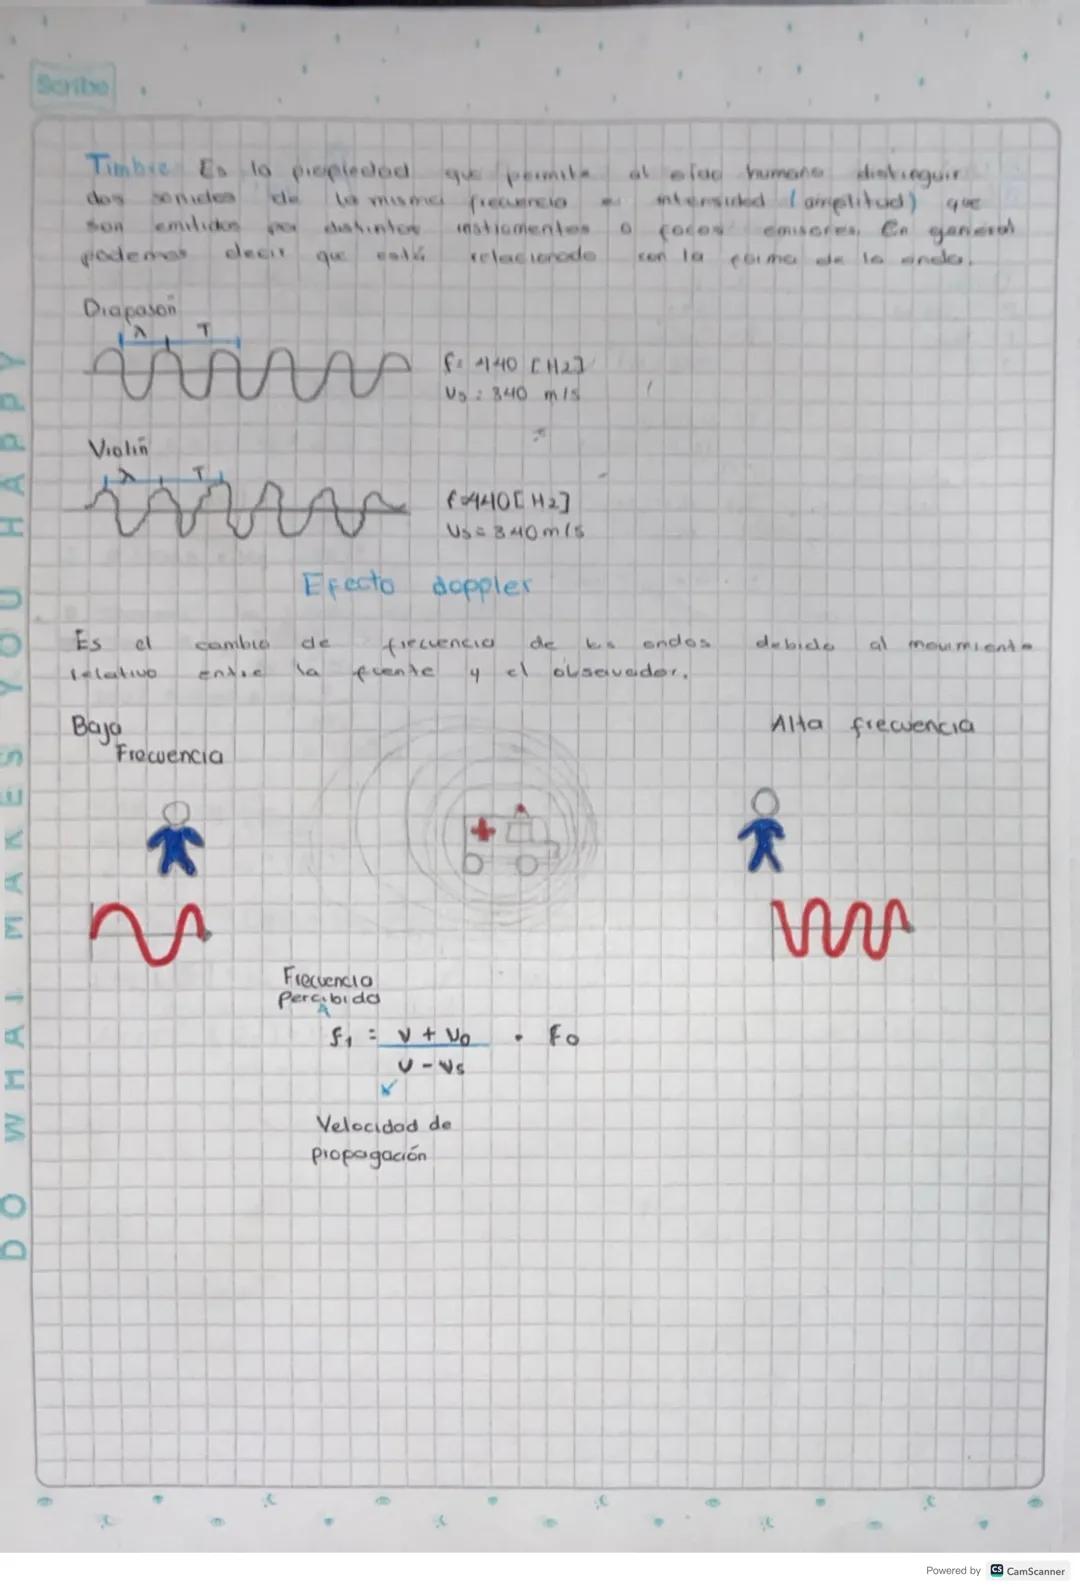 Scribe
Timbre Es la propiedad que permite al oido humano distinguir
dos sonidos de la misma frecuencia e intensidad (amplitud) que
son emitidos por distintos instrumentos o focos emisores. En general
podemos decir que está relacionado con la forma de la onda.
Diapasoñ
λ T
f= 440 [Hz]
Vs = 340 m/s
Violiñ
λ T
f=440[Hz]
Vs = 340 m/s
Efecto doppler
Es el cambio de frecuencia de las ondas debido al movimiento
relativo entre la fuente y el obsevador.
Baja Frecuencia
Alta frecuencia
Frecuencia
Percibida
f₁ = V + Vo / V - Vs • Fo
Velocidad de
propagación
DO WHAT MAKES YOU HAPPY
Powered by CS CamScanner